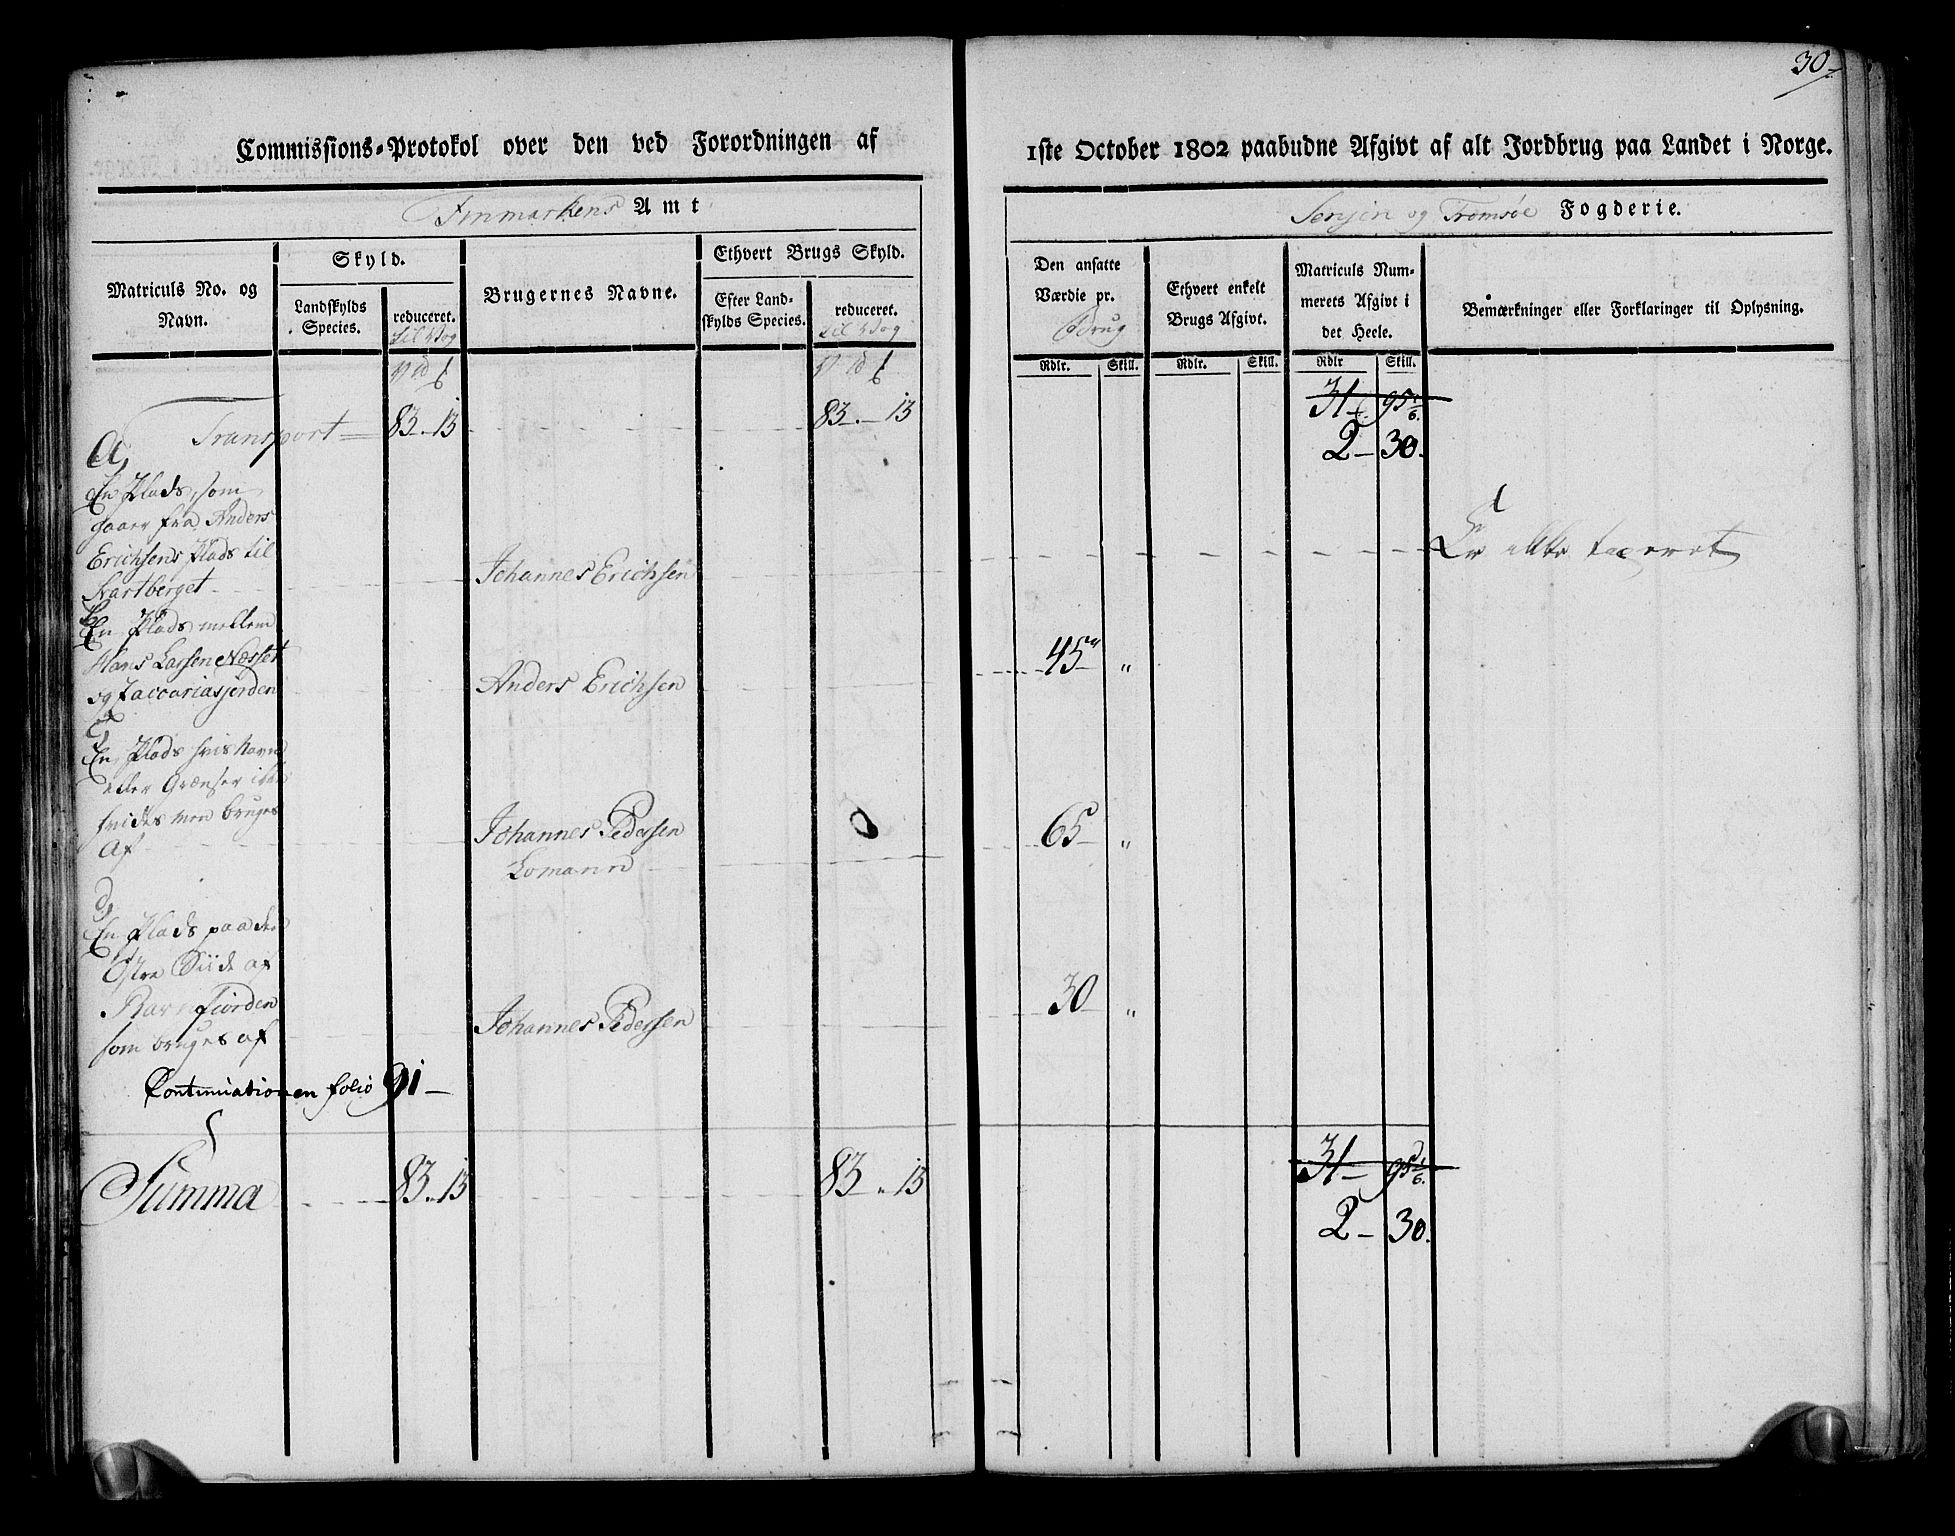 30
Commissions-Protokol over den ved Forordningen af
1ste October 1802 paabudne Afgivt af alt Jordbrug paa Landet i Norge.
Finmarkens Amt
Senjen og Tromsøe Fogderie.
Matriculs No. og Navn.
Skyld.
Landskylds Species.
reduceret. til Vog
Brugernes Navne.
Ethvert Brugs Skyld.
Efter Landskylds Species.
reduceret. til Vog
Den ansatte Værdie pr. Brug
Ethvert enkelt Brugs Afgivt.
Matriculs Nummerets Afgivt i det Heele.
Bemærkninger eller Forklaringer til Oplysning.
Rdlr. Skill. Rdlr. Skill. Rdlr Skill.
Transport 83. 13 83. 13 31 95 1/6
2 - 30.
a,
En Plads, som
gaaer fra Anders
Erichsens Plads til
Svartberget Johannes Erichsen Er ikke taxeret
b,
En Plads mellem
Hans Larsen Næsset 45 "
og Zaccariasjorden Anders Erichsen
c,
En Plads hvis Navn
eller Grænser ikke
vides men bruges
Af Johannes Pedersen 0 65 "
Lomann
d,
En Plads paa den
Østre Siide af
Ravnfiorden 30 "
som bruges af Johannes Pedersen
Continuationen folio 91 -
Summa 83. 13 83 " 13 31 - 95 1/6.
2 - 30.